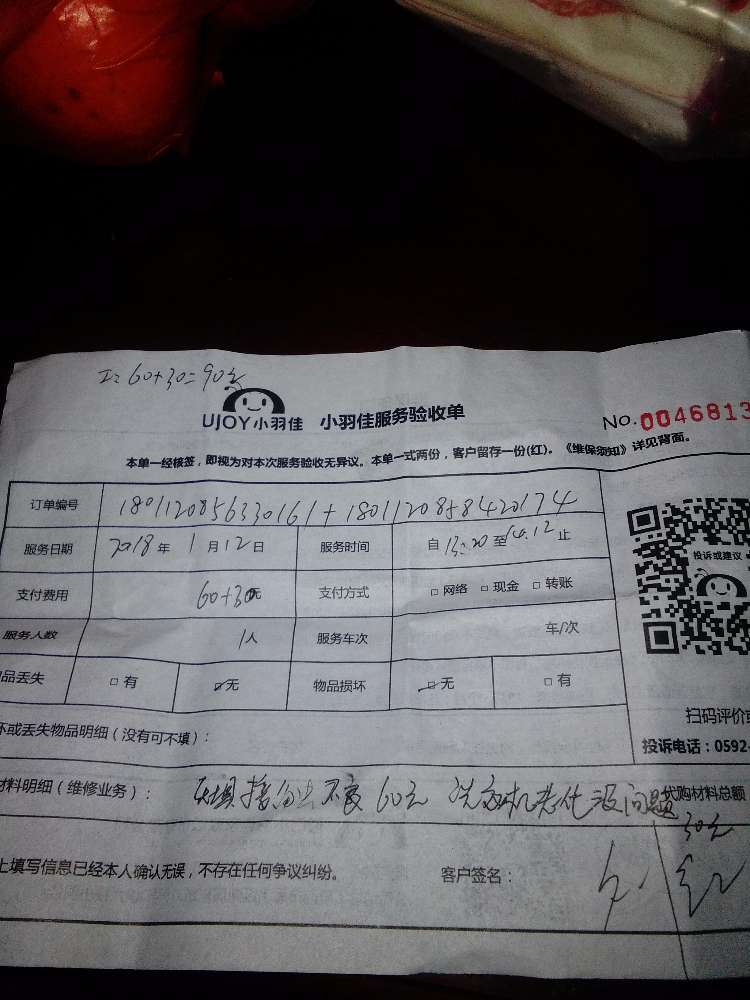 60+30=90元
UJOY小羽佳 小羽佳服务验收单
No.0046813
本单一经核签，即视为对本次服务验收无异议。本单一式两份，客户留存一份(红)。《维保须知》详见背面。
订单编号 1801120856330161+1801120858420174
服务日期 2018年1月12日 服务时间 自13:20至14.12止
投诉或建议
支付费用 60+30元 支付方式 □网络 □现金 □转账
服务人数 1人 服务车次 车/次
品丢失 □有 ☑无 物品损坏 ☑无 □有
扫码评价或
坏或丢失物品明细（没有可不填）：
投诉电话：0592-
材料明细（维修业务）： 不良 60元 洗衣机老化没问题 代购材料总额
30元
上填写信息已经本人确认无误，不存在任何争议纠纷。 客户签名：